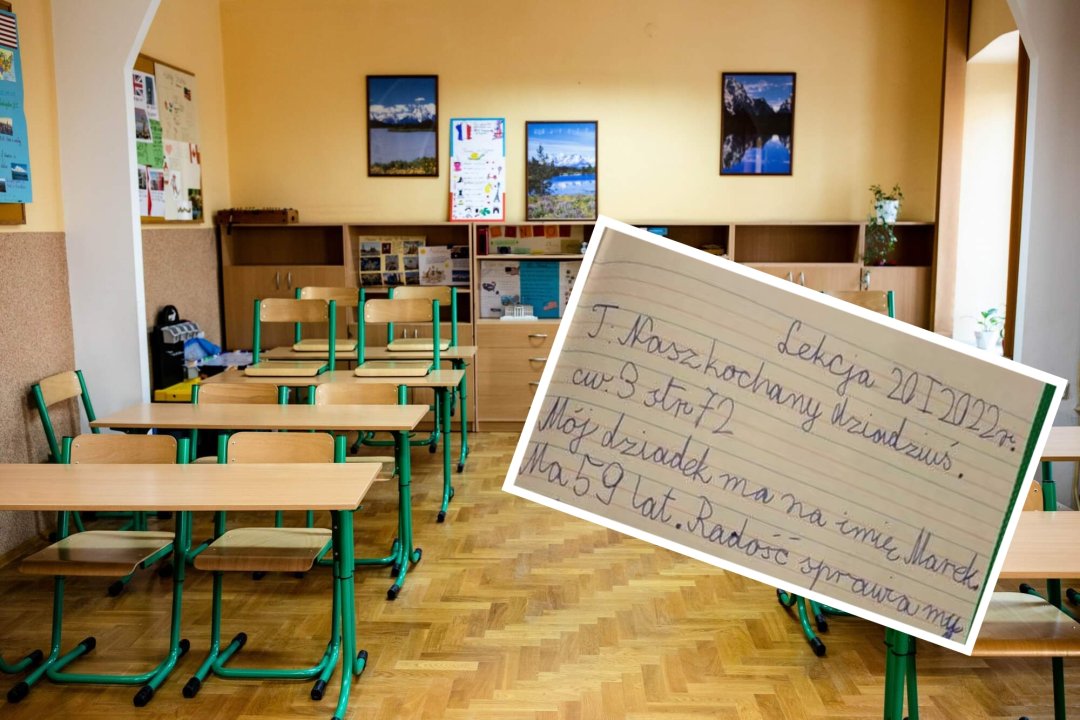 Lekcja 20 I 2022r.
T: Nasz kochany dziadziuś.
ćw. 3 str 72
Mój dziadek ma na imię Marek.
Ma 59 lat. Radość sprawia my